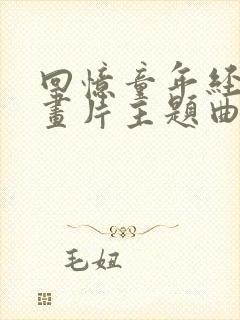 回憶童年經
畫片主題曲
毛妞